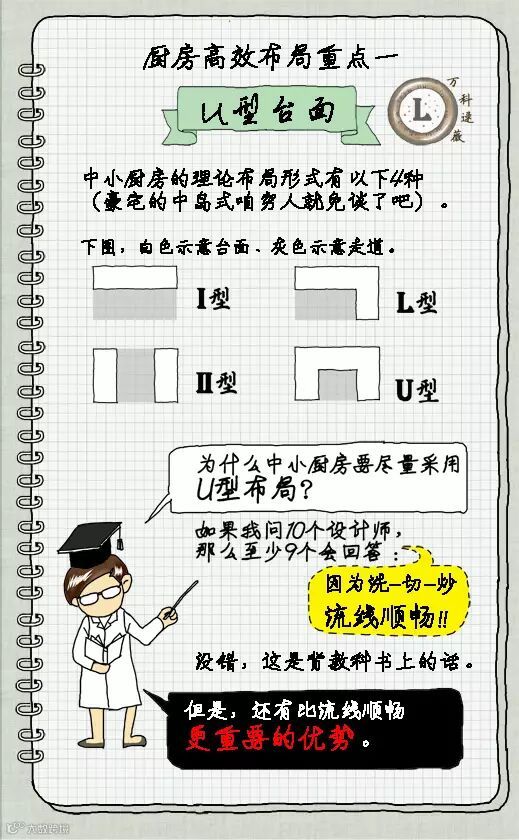 厨房高效布局重点一
U型台面
L
万科速薇
中小厨房的理论布局形式有以下4种
（豪宅的中岛式咱穷人就免谈了吧）。
下图，白色示意台面、灰色示意走道。
I型
L型
II型
U型
为什么中小厨房要尽量采用
U型布局？
如果我问10个设计师，
那么至少9个会回答：
因为洗-切-炒
流线顺畅!!
没错，这是背教科书上的话。
但是，还有比流线顺畅
更重要的优势。